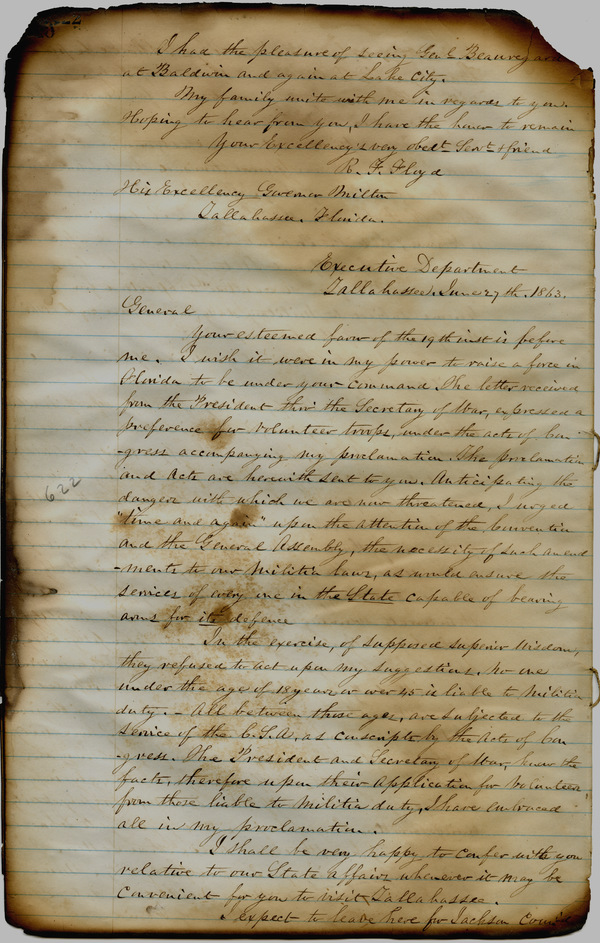 I had the pleasure of seeing Genl Beauregard
at Baldwin and again at Lake City.
My family unite with me in regards to you.
Hoping to hear from you, I have the honor to remain
Your Excellency's very obedt Servt & friend
R. F. Floyd
His Excellency Governor Milton
Tallahassee. Florida.
Executive Department
Tallahassee, June 27th. 1863.
General
Your esteemed favor of the 19th inst is before
me. I wish it were in my power to raise a force in
Florida to be under your command. The letter received
from the President thro' the Secretary of War, expressed a
preference for volunteer troops, under the acts of Con
-gress accompanying my proclamation. The proclamation
and Acts are herewith sent to you. Anticipating the
dangers with which we are now threatened, I urged
"time and again" upon the attention of the Convention
and the General Assembly, the necessity of such amend
-ments to our Militia laws, as would ensure the
services of every one in the State capable of bearing
arms for its defence
622
In the exercise, of supposed superior wisdom,
they refused to act upon my suggestions. No one
under the age of 18 years or over 45 is liable to Militia
duty. - All between those ages, are subjected to the
service of the C.S.A. as conscripts by the Acts of Con
-gress. The President and Secretary of War, knew the
facts, therefore upon their application for Volunteers
from those liable to Militia duty, I have embraced
all in my proclamation.
I shall be very happy to confer with you
relative to our State affairs whenever it may be
convenient for you to visit Tallahassee.
I expect to leave here for Jackson County